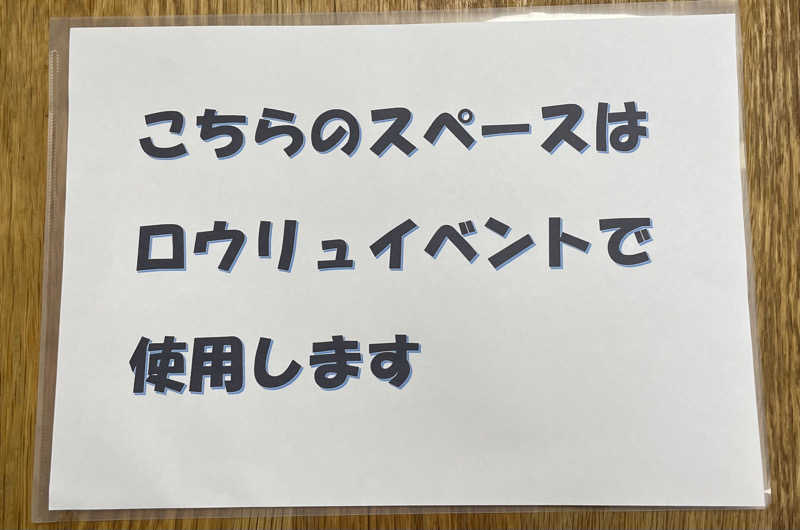 こちらのスペースは
ロウリュイベントで
使用します